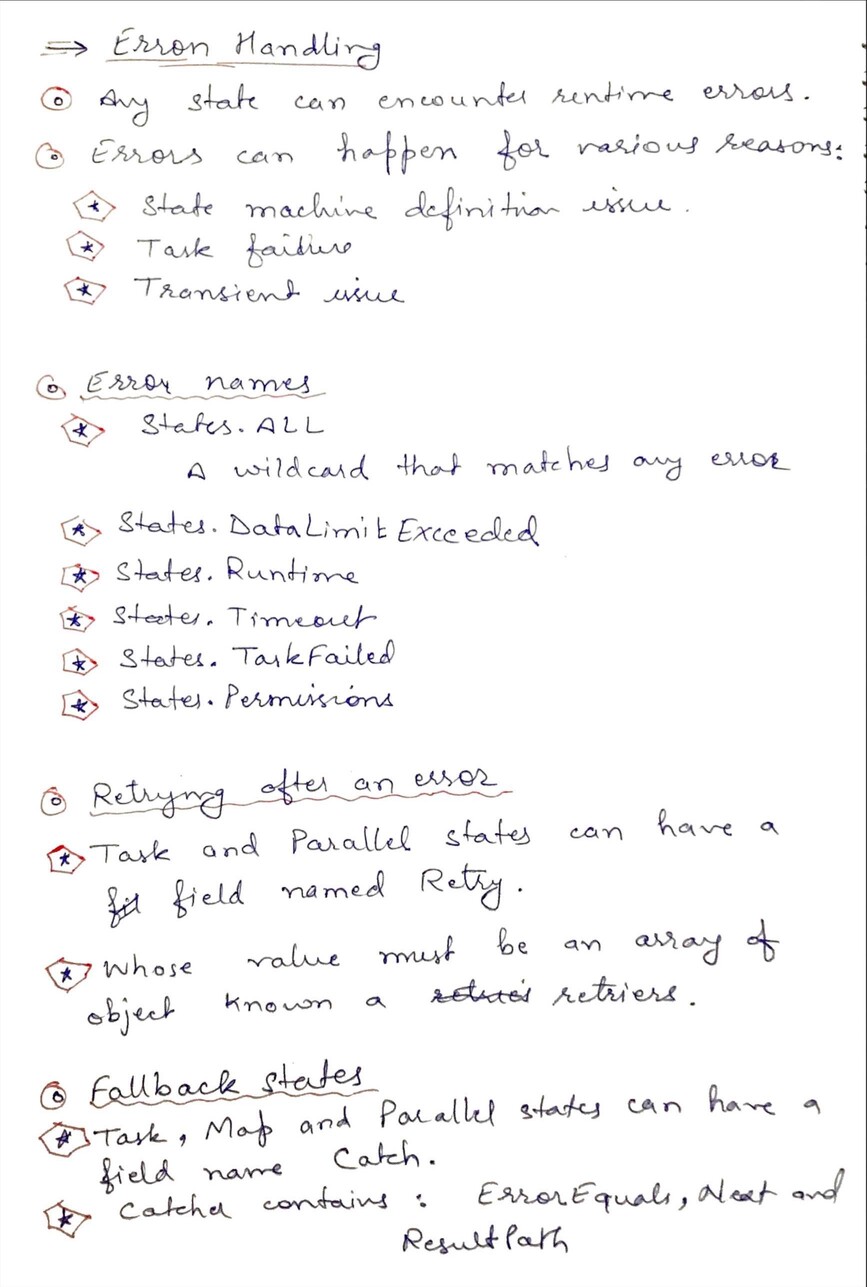 ⇒ Error Handling
Any state can encounter rentime errors.
Errors can happen for various reasons:
State machine definition issue.
Task failure
Transient issue
Error names
States.ALL
A wildcard that matches any error
States.DataLimitExceeded
States.Runtime
States.Timeout
States.TaskFailed
States.Permissions
Retrying after an error
Task and Parallel states can have a
field named Retry.
Whose value must be an array of
object known a retriers.
Fallback states
Task, Map and Parallel states can have a
field name Catch.
Catcher contains : ErrorEquals, Next and
ResultPath